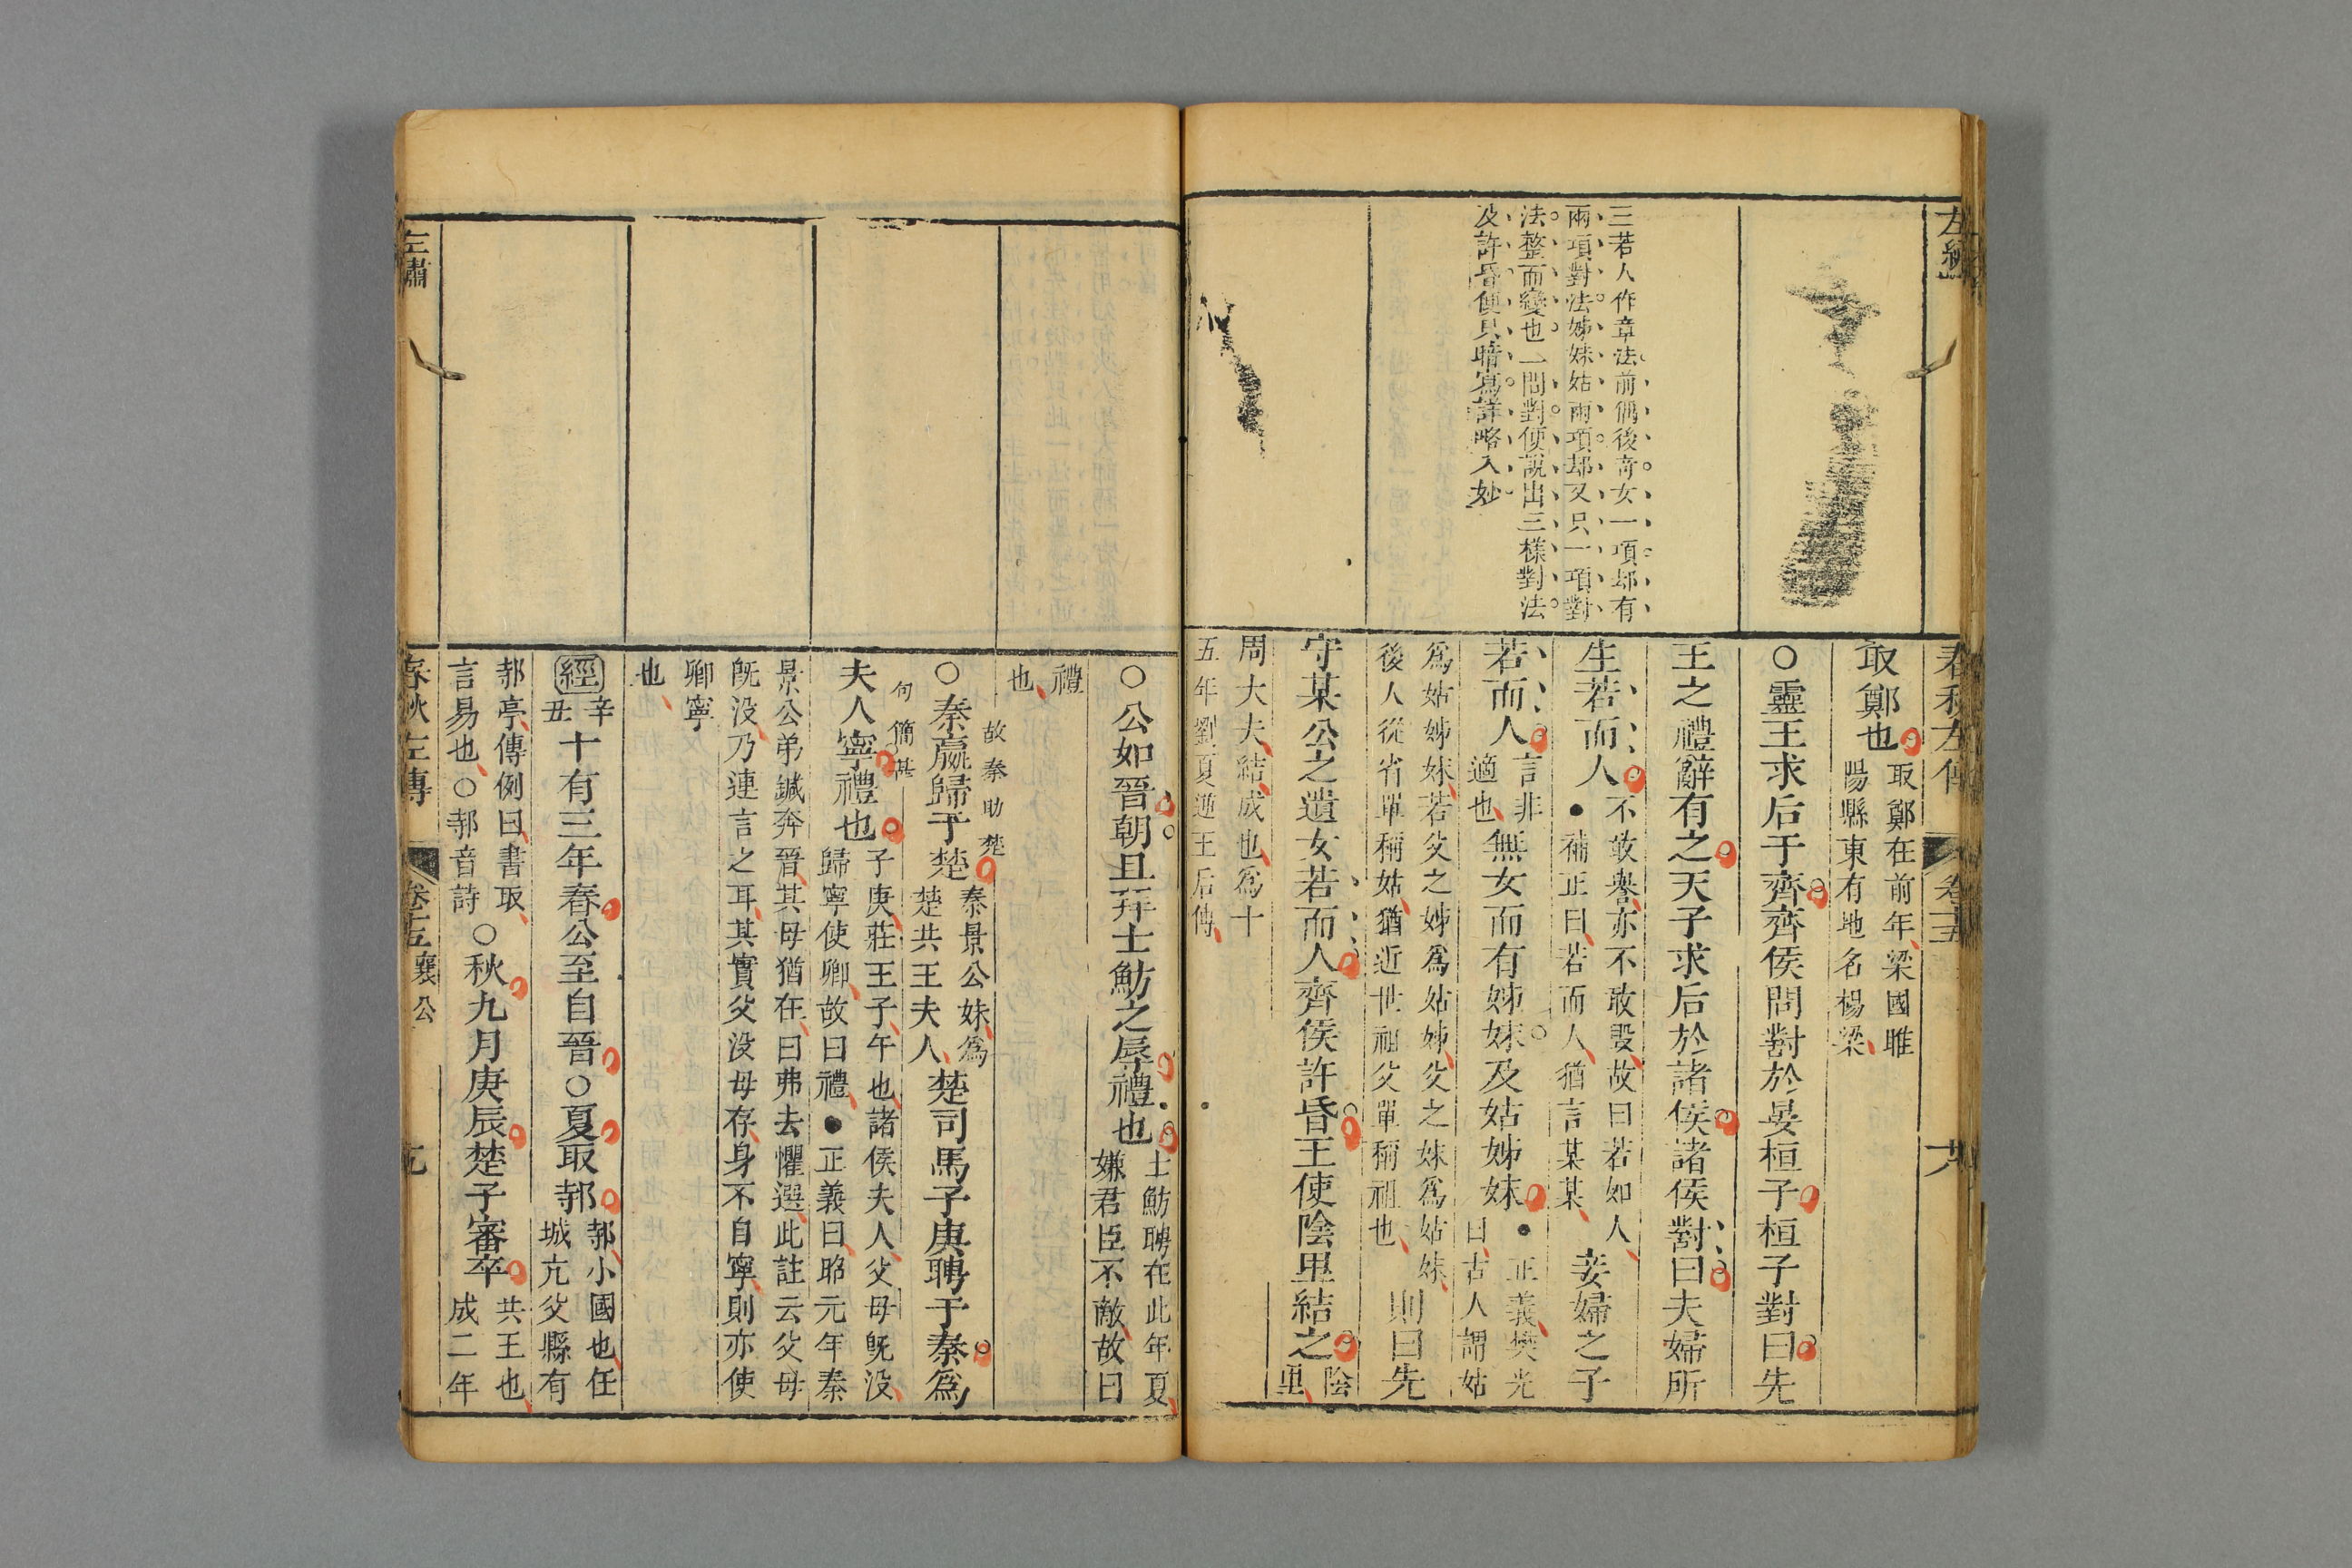 三若人作章法前偶後奇女一項却有
兩項對法姊妹姑兩項却又只一項對
法整而變也一問對便說出三樣對法
及許昏便只暗寫詳略入妙
取鄭也
取鄭在前年梁國睢
陽縣東有地名楊梁
○靈王求后于齊齊侯問對於晏桓子桓子對曰先
王之禮辭有之天子求后於諸侯諸侯對曰夫婦所
生若而人
不敢譽亦不敢毀故曰若如人
●補正曰若而人猶言某某
妾婦之子
若而人
言非
適也
無女而有姊妹及姑姊妹
●正義樊光
曰古人謂姑
為姑姊妹若父之姊為姑姊父之妹為姑妹
後人從省單稱姑猶近世祖父單稱祖也
則曰先
守某公之遺女若而人齊侯許昏王使陰里結之
陰
里
周大夫結成也為十
五年劉夏逆王后傳
春秋左傳
卷十五
○公如晉朝且拜士魴之辱禮也
士魴聘在此年夏
嫌君臣不敵故曰
禮
也
故秦助楚
○秦嬴歸于楚
秦景公妹為
楚共王夫人
楚司馬子庚聘于秦為
句簡甚
夫人寧禮也
子庚莊王子午也諸侯夫人父母既没
歸寧使卿故曰禮●正義曰昭元年秦
景公弟鍼奔晉其母猶在曰弗去懼選此註云父母
既没乃連言之耳其實父没母存身不自寧則亦使
卿寧
也
經
辛
丑
十有三年春公至自晉○夏取邿
邿小國也任
城亢父縣有
邿亭傳例曰書取
言易也○邿音詩
○秋九月庚辰楚子審卒
共王也
成二年
左繡
春秋左傳
卷十五
襄公